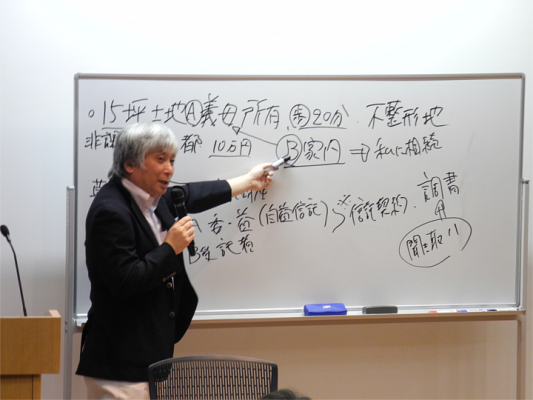 ○15坪土地Ⓐ義母所有、20分、不整形地
非 都 10万円 Ⓑ家内 → 私に相続
A 委・益(自益信託) ※信託契約 調書
B受託者 聞き取り